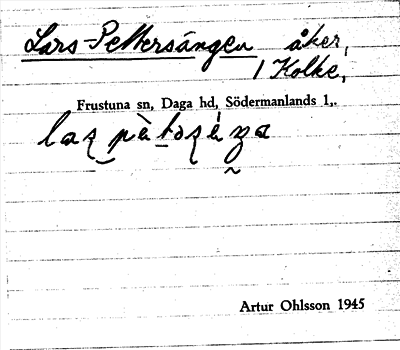 Lars-Pettersängen åker,
1 Kolke,
Frustuna sn, Daga hd, Södermanlands l.
Artur Ohlsson 1945